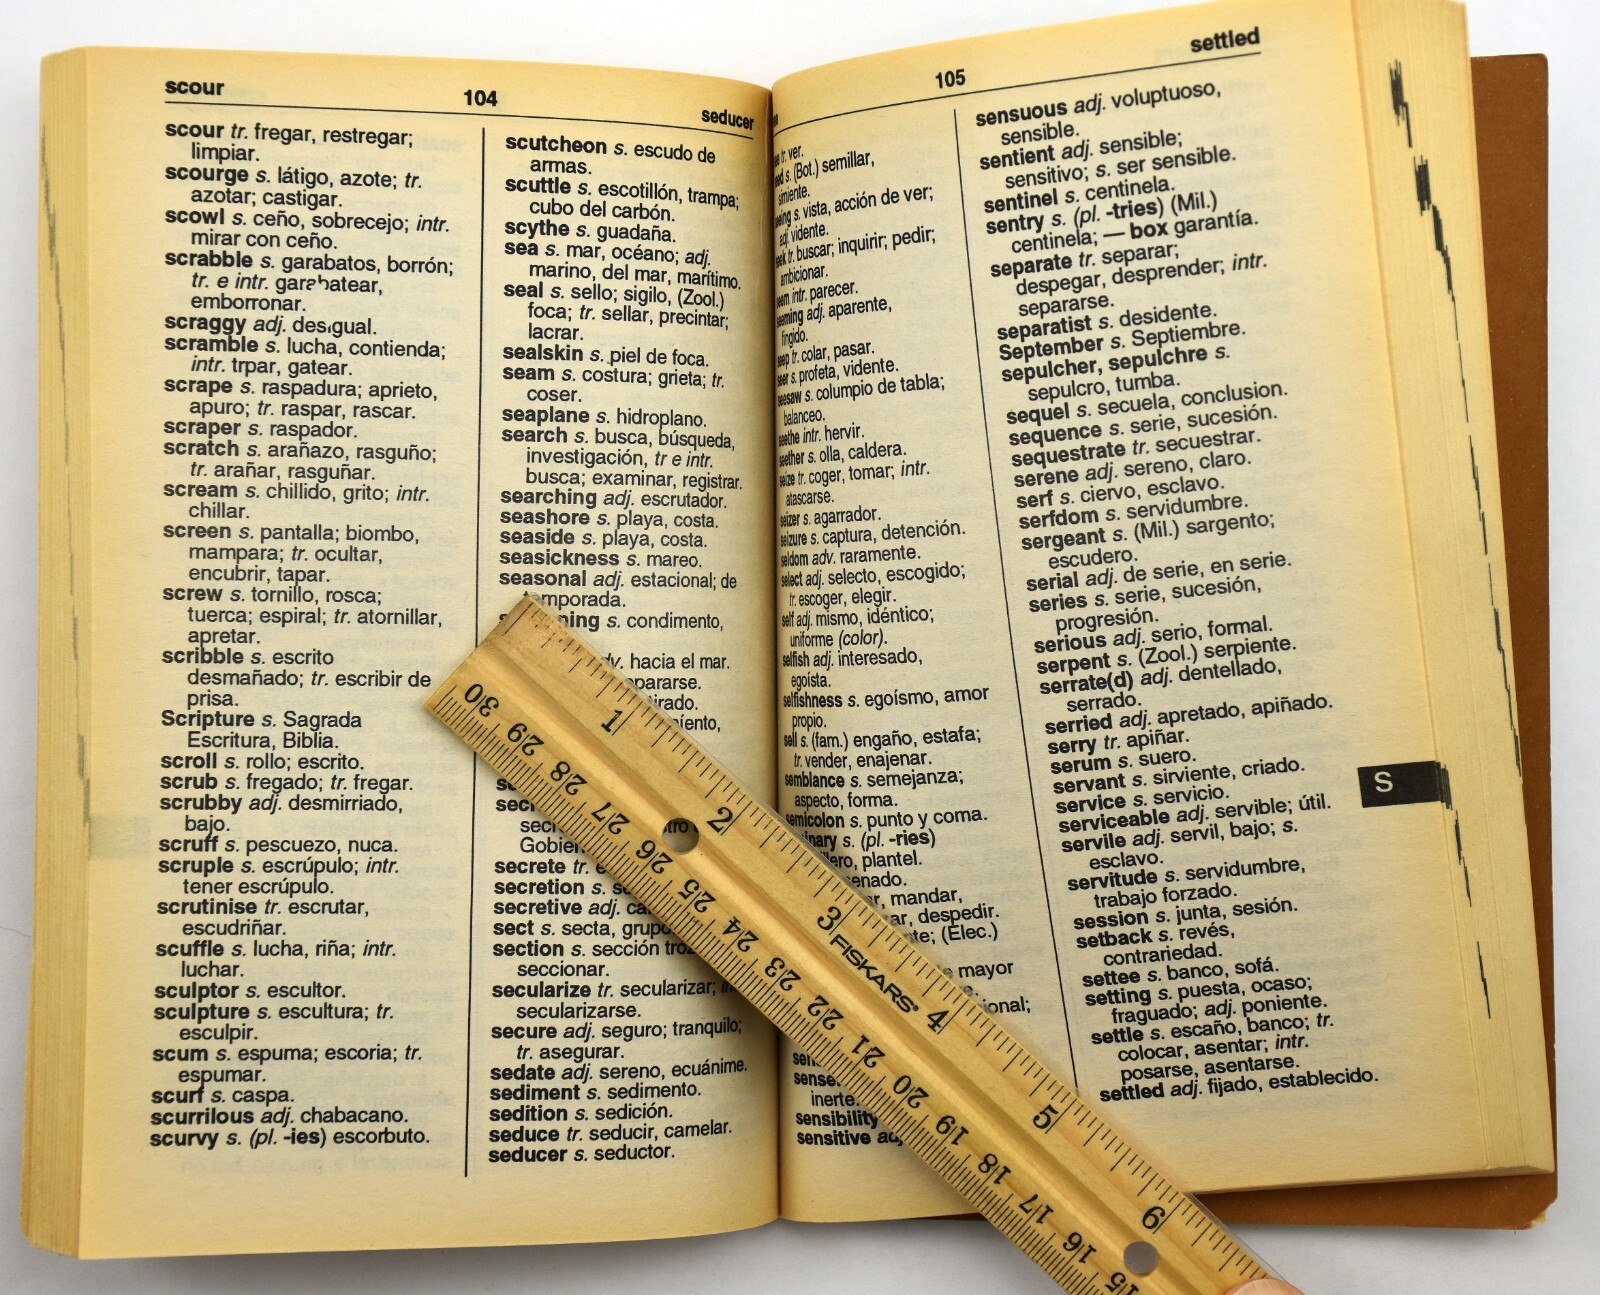 scour
104
seducer
scour tr. fregar, restregar;
limpiar.
scourge s. látigo, azote; tr.
azotar; castigar.
scowl s. ceño, sobrecejo; intr.
mirar con ceño.
scrabble s. garabatos, borrón;
tr. e intr. garabatear,
emborronar.
scraggy adj. desigual.
scramble s. lucha, contienda;
intr. trpar, gatear.
scrape s. raspadura; aprieto,
apuro; tr. raspar, rascar.
scraper s. raspador.
scratch s. arañazo, rasguño;
tr. arañar, rasguñar.
scream s. chillido, grito; intr.
chillar.
screen s. pantalla; biombo,
mampara; tr. ocultar,
encubrir, tapar.
screw s. tornillo, rosca;
tuerca; espiral; tr. atornillar,
apretar.
scribble s. escrito
desmañado; tr. escribir de
prisa.
Scripture s. Sagrada
Escritura, Biblia.
scroll s. rollo; escrito.
scrub s. fregado; tr. fregar.
scrubby adj. desmirriado,
bajo.
scruff s. pescuezo, nuca.
scruple s. escrúpulo; intr.
tener escrúpulo.
scrutinise tr. escrutar,
escudriñar.
scuffle s. lucha, riña; intr.
luchar.
sculptor s. escultor.
sculpture s. escultura; tr.
esculpir.
scum s. espuma; escoria; tr.
espumar.
scurf s. caspa.
scurrilous adj. chabacano.
scurvy s. (pl. -ies) escorbuto.
scutcheon s. escudo de
armas.
scuttle s. escotillón, trampa;
cubo del carbón.
scythe s. guadaña.
sea s. mar, océano; adj.
marino, del mar, marítimo.
seal s. sello; sigilo, (Zool.)
foca; tr. sellar, precintar;
lacrar.
sealskin s. piel de foca.
seam s. costura; grieta; tr.
coser.
seaplane s. hidroplano.
search s. busca, búsqueda,
investigación, tr e intr.
busca; examinar, registrar.
searching adj. escrutador.
seashore s. playa, costa.
seaside s. playa, costa.
seasickness s. mareo.
seasonal adj. estacional; de
temporada.
s. condimento,
hacia el mar.
secrete tr.
secretion s.
secretive adj.
sect s. secta,
section s. sección
seccionar.
secularize tr. secularizar;
secularizarse.
secure adj. seguro; tranquilo;
tr. asegurar.
sedate adj. sereno, ecuánime.
sediment s. sedimento.
sedition s. sedición.
seduce tr. seducir, camelar.
seducer s. seductor.
105
settled
tr. ver.
s. (Bot.) semillar,
simiente.
s. vista, acción de ver;
adj. vidente.
tr. buscar; inquirir; pedir;
ambicionar.
intr. parecer.
adj. aparente,
fingido.
tr. colar, pasar.
s. profeta, vidente.
seesaw s. columpio de tabla;
balanceo.
seethe intr. hervir.
seether s. olla, caldera.
seize tr. coger, tomar; intr.
atascarse.
seizer s. agarrador.
seizure s. captura, detención.
seldom adv. raramente.
select adj. selecto, escogido;
tr. escoger, elegir.
self adj. mismo, idéntico;
uniforme (color).
selfish adj. interesado,
egoísta.
selfishness s. egoísmo, amor
propio.
sell s. (fam.) engaño, estafa;
tr. vender, enajenar.
semblance s. semejanza;
aspecto, forma.
semicolon s. punto y coma.
s. (pl. -ries)
plantel.
mandar,
despedir.
(Elec.)
mayor
inerte.
sensibility
sensitive
sensuous adj. voluptuoso,
sensible.
sentient adj. sensible;
sensitivo; s. ser sensible.
sentinel s. centinela.
sentry s. (pl. -tries) (Mil.)
centinela; — box garantía.
separate tr. separar;
despegar, desprender; intr.
separarse.
separatist s. desidente.
September s. Septiembre.
sepulcher, sepulchre s.
sepulcro, tumba.
sequel s. secuela, conclusion.
sequence s. serie, sucesión.
sequestrate tr. secuestrar.
serene adj. sereno, claro.
serf s. ciervo, esclavo.
serfdom s. servidumbre.
sergeant s. (Mil.) sargento;
escudero.
serial adj. de serie, en serie.
series s. serie, sucesión,
progresión.
serious adj. serio, formal.
serpent s. (Zool.) serpiente.
serrate(d) adj. dentellado,
serrado.
serried adj. apretado, apiñado.
serry tr. apiñar.
serum s. suero.
servant s. sirviente, criado.
service s. servicio.
serviceable adj. servible; útil.
servile adj. servil, bajo; s.
esclavo.
servitude s. servidumbre,
trabajo forzado.
session s. junta, sesión.
setback s. revés,
contrariedad.
settee s. banco, sofá.
setting s. puesta, ocaso;
fraguado; adj. poniente.
settle s. escaño, banco; tr.
colocar, asentar; intr.
posarse, asentarse.
settled adj. fijado, establecido.
S
1 2 3 FISKARS 4 5 6
30 29 28 27 26 25 24 23 22 21 20 19 18 17 16 15